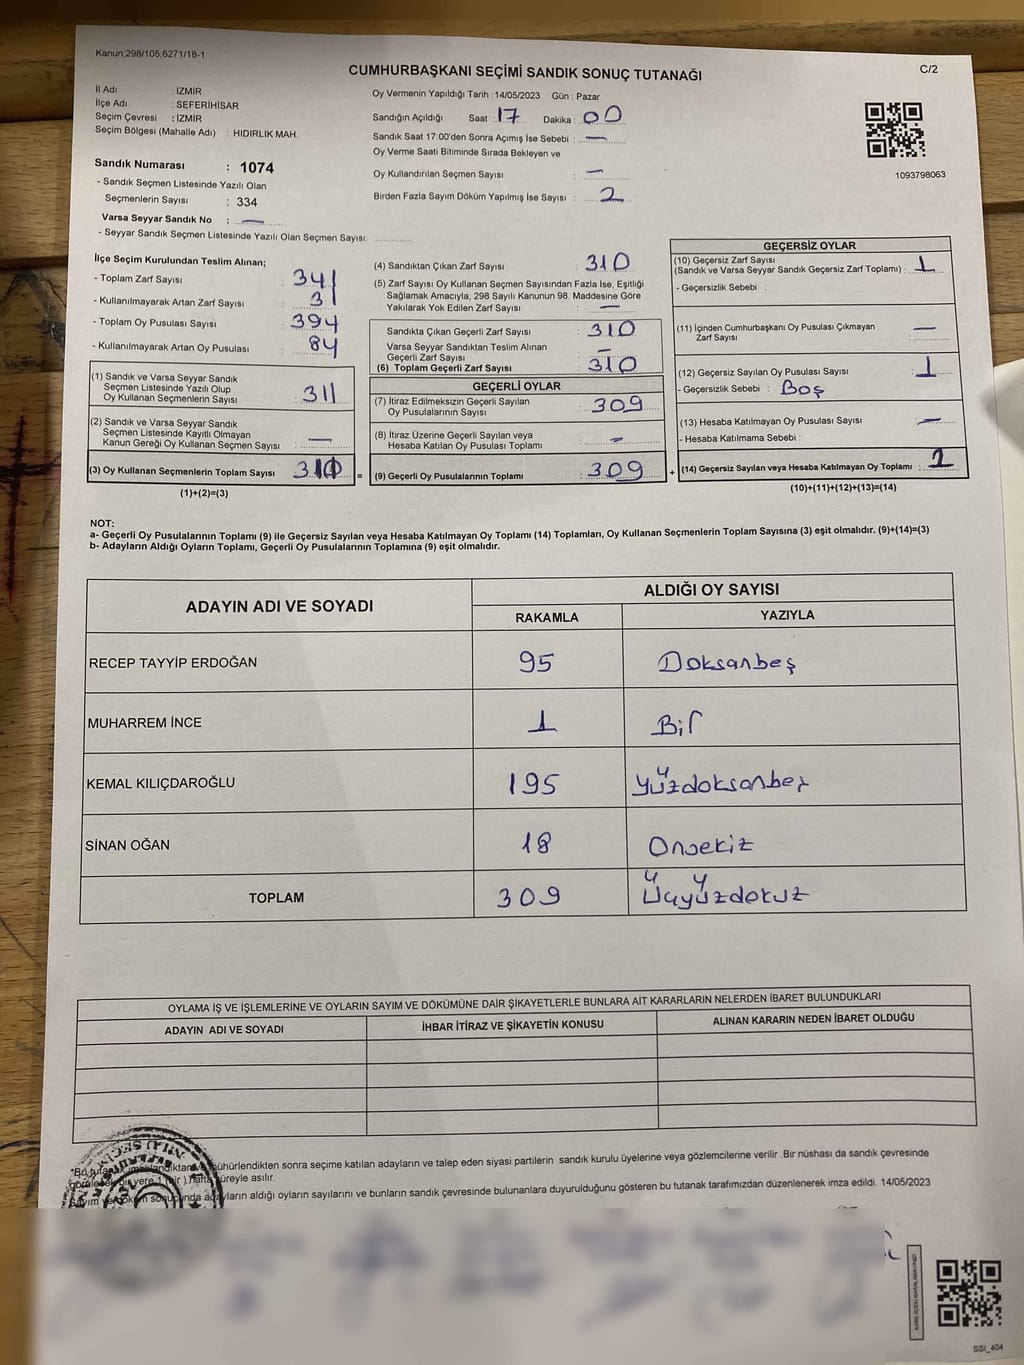 Kanun;298/105,6271/18-1
C/2
CUMHURBAŞKANI SEÇİMİ SANDIK SONUÇ TUTANAĞI
İl Adı : İZMİR
İlçe Adı : SEFERİHİSAR
Seçim Çevresi : İZMİR
Seçim Bölgesi (Mahalle Adı) : HIDIRLIK MAH.
Sandık Numarası : 1074
- Sandık Seçmen Listesinde Yazılı Olan
Seçmenlerin Sayısı : 334
Varsa Seyyar Sandık No : —
- Seyyar Sandık Seçmen Listesinde Yazılı Olan Seçmen Sayısı:
Oy Vermenin Yapıldığı Tarih : 14/05/2023 Gün : Pazar
Sandığın Açıldığı Saat : 17 Dakika : 00
Sandık Saat 17:00'den Sonra Açımış İse Sebebi : —
Oy Verme Saati Bitiminde Sırada Bekleyen ve
Oy Kullandırılan Seçmen Sayısı : —
Birden Fazla Sayım Döküm Yapılmış İse Sayısı : 2
1093798063
İlçe Seçim Kurulundan Teslim Alınan;
- Toplam Zarf Sayısı : 341
- Kullanılmayarak Artan Zarf Sayısı : 31
- Toplam Oy Pusulası Sayısı : 394
- Kullanılmayarak Artan Oy Pusulası : 84
(1) Sandık ve Varsa Seyyar Sandık
Seçmen Listesinde Yazılı Olup
Oy Kullanan Seçmenlerin Sayısı : 311
(2) Sandık ve Varsa Seyyar Sandık
Seçmen Listesinde Kayıtlı Olmayan
Kanun Gereği Oy Kullanan Seçmen Sayısı : —
(3) Oy Kullanan Seçmenlerin Toplam Sayısı : 310
(1)+(2)=(3)
(4) Sandıktan Çıkan Zarf Sayısı : 310
(5) Zarf Sayısı Oy Kullanan Seçmen Sayısından Fazla İse, Eşitliği
Sağlamak Amacıyla; 298 Sayılı Kanunun 98. Maddesine Göre
Yakılarak Yok Edilen Zarf Sayısı : —
Sandıkta Çıkan Geçerli Zarf Sayısı : 310
Varsa Seyyar Sandıktan Teslim Alınan
Geçerli Zarf Sayısı : —
(6) Toplam Geçerli Zarf Sayısı : 310
GEÇERLİ OYLAR
(7) İtiraz Edilmeksizin Geçerli Sayılan
Oy Pusulalarının Sayısı : 309
(8) İtiraz Üzerine Geçerli Sayılan veya
Hesaba Katılan Oy Pusulası Toplamı : —
= (9) Geçerli Oy Pusulalarının Toplamı : 309 +
GEÇERSİZ OYLAR
(10) Geçersiz Zarf Sayısı
(Sandık ve Varsa Seyyar Sandık Geçersiz Zarf Toplamı) : 1
- Geçersizlik Sebebi :
(11) İçinden Cumhurbaşkanı Oy Pusulası Çıkmayan
Zarf Sayısı : —
(12) Geçersiz Sayılan Oy Pusulası Sayısı : 1
- Geçersizlik Sebebi : Boş
(13) Hesaba Katılmayan Oy Pusulası Sayısı : —
- Hesaba Katılmama Sebebi :
(14) Geçersiz Sayılan veya Hesaba Katılmayan Oy Toplamı :
(10)+(11)+(12)+(13)=(14)
NOT:
a- Geçerli Oy Pusulalarının Toplamı (9) ile Geçersiz Sayılan veya Hesaba Katılmayan Oy Toplamı (14) Toplamları, Oy Kullanan Seçmenlerin Toplam Sayısına (3) eşit olmalıdır. (9)+(14)=(3)
b- Adayların Aldığı Oyların Toplamı, Geçerli Oy Pusulalarının Toplamına (9) eşit olmalıdır.
ADAYIN ADI VE SOYADI
ALDIĞI OY SAYISI
RAKAMLA YAZIYLA
RECEP TAYYİP ERDOĞAN 95 Doksanbeş
MUHARREM İNCE 1 Bir
KEMAL KILIÇDAROĞLU 195 Yüzdoksanbeş
SİNAN OĞAN 18 Onsekiz
TOPLAM 309 Üçyüzdokuz
OYLAMA İŞ VE İŞLEMLERİNE VE OYLARIN SAYIM VE DÖKÜMÜNE DAİR ŞİKAYETLERLE BUNLARA AİT KARARLARIN NELERDEN İBARET BULUNDUKLARI
ADAYIN ADI VE SOYADI İHBAR İTİRAZ VE ŞİKAYETİN KONUSU ALINAN KARARIN NEDEN İBARET OLDUĞU
mühürlendikten sonra seçime katılan adayların ve talep eden siyasi partilerin sandık kurulu üyelerine veya gözlemcilerine verilir. Bir nüshası da sandık çevresinde
süreyle asılır.
adayların aldığı oyların sayılarını ve bunların sandık çevresinde bulunanlara duyurulduğunu gösteren bu tutanak tarafımızdan düzenlenerek imza edildi. 14/05/2023
SSI_404